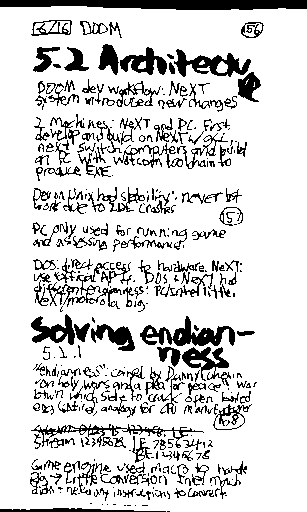 6/16 DOOM 156
5.2 Architecture
DOOM dev workflow: NeXT
system introduced new changes
2 Machines: NeXT and PC. First
develop and build on NeXT w/ gcc
next switch computers and build
on PC with Watcom toolchain to
produce EXE.
Dev on Unix had stability: never lost
work due to IDE crashes
157
PC only used for running game
and assessing performance.
DOS: direct access to hardware. NeXT:
use API. DOS & NeXT had
different endianness: PC/intel little,
NeXT/motorola big.
Solving endian-
ness
5.2.1
"endianness": coined by Danny Cohen in
"on holy wars and a plea for peace". War
btwn which side to crack open boiled
egg (satire), analogy for CPU manufacturer
158
Stream 12345678 LE 78563412
BE 12345678
Game engine used macro to handle
Big → Little Conversion. Intel
didn't need any instructions to convert.